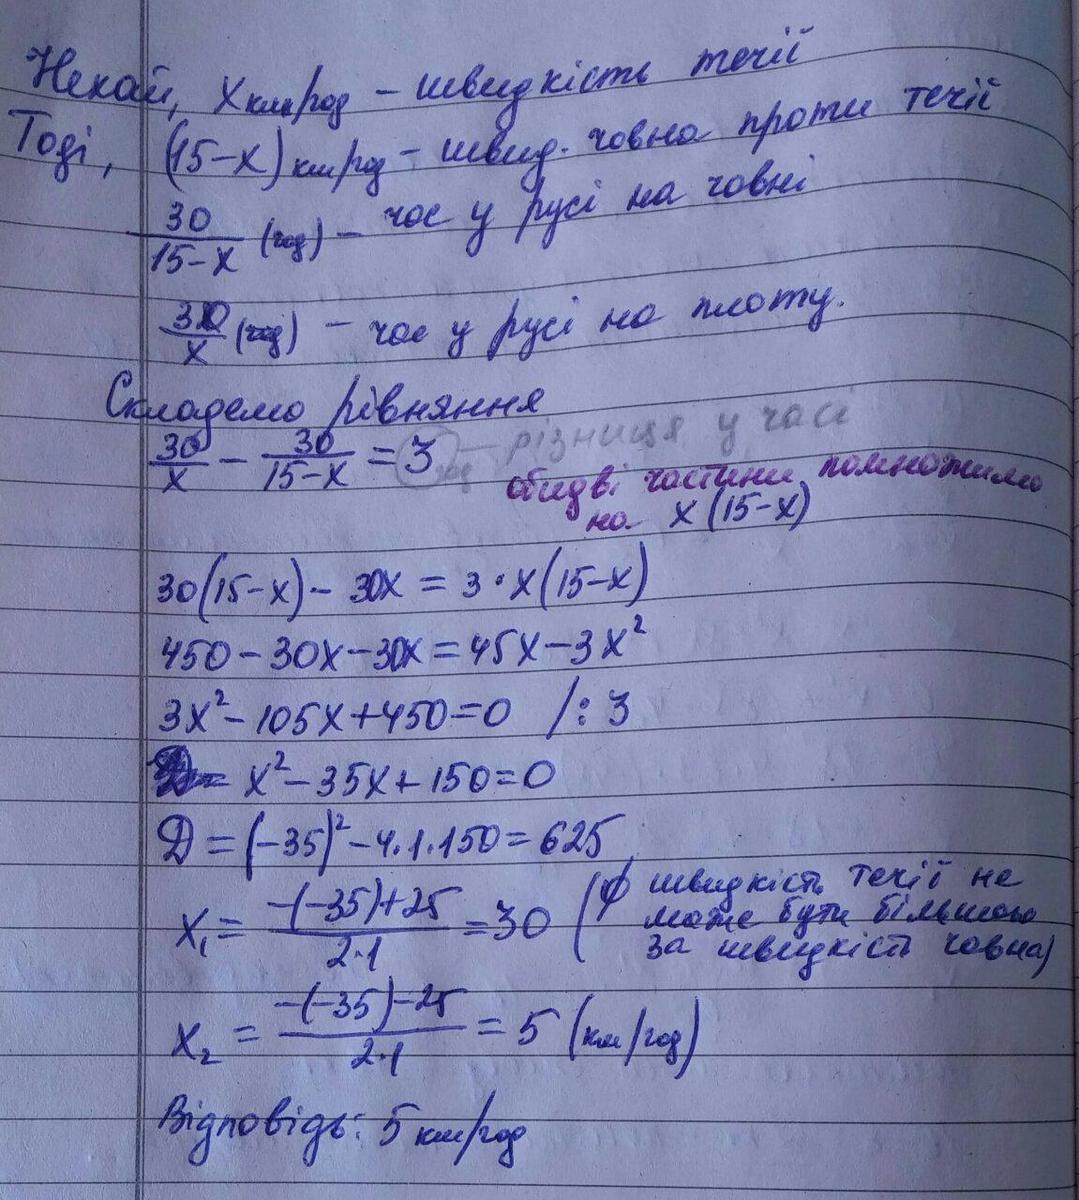 Нехай, x км/год – швидкість течії
Тоді, (15-x) км/год – швид. човна проти течії
30/(15-x) (год) – час у русі на човні
30/x (год) – час у русі на плоту.
Складемо рівняння
30/x - 30/(15-x) = 3 – різниця у часі
обидві частини помножимо
на x(15-x)
30(15-x) - 30x = 3·x(15-x)
450-30x-30x=45x-3x²
3x²-105x+450=0 /:3
x²-35x+150=0
D=(-35)²-4.1.150=625
x₁= (-(-35)+25)/(2·1) =30 (∅ швидкість течії не
може бути більшою
за швидкість човна)
x₂ = (-(-35)-25)/(2·1) = 5 (км/год)
Відповідь: 5 км/год